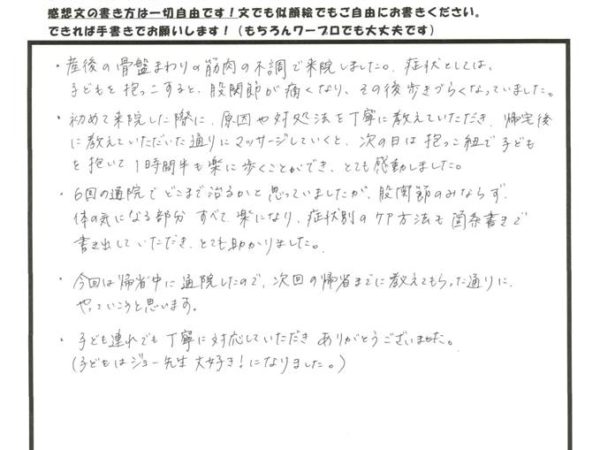 感想文の書き方は一切自由です！文でも似顔絵でもご自由にお書きください。
できれば手書きでお願いします！（もちろんワープロでも大丈夫です）
・産後の骨盤まわりの筋肉の不調で来院しました。症状としては、
子どもを抱っこすると、股関節が痛くなり、その後歩きづらくなっていました。
・初めて来院した際に、原因や対処法を丁寧に教えていただき、帰宅後
に教えていただいた通りにマッサージしていくと、次の日は抱っこ紐で子ども
を抱いて1時間半も楽に歩くことができ、とても感動しました。
・6回の通院でどこまで治るかと思っていましたが、股関節のみならず、
体の気になる部分すべて楽になり、症状別のケア方法も箇条書きで
書き出していただき、とても助かりました。
・今回は帰省中に通院したので、次回の帰省までに教えてもらった通りに
やっていこうと思います。
・子ども連れでも丁寧に対応していただきありがとうございました。
（子どもはジョー先生大好き！になりました。）